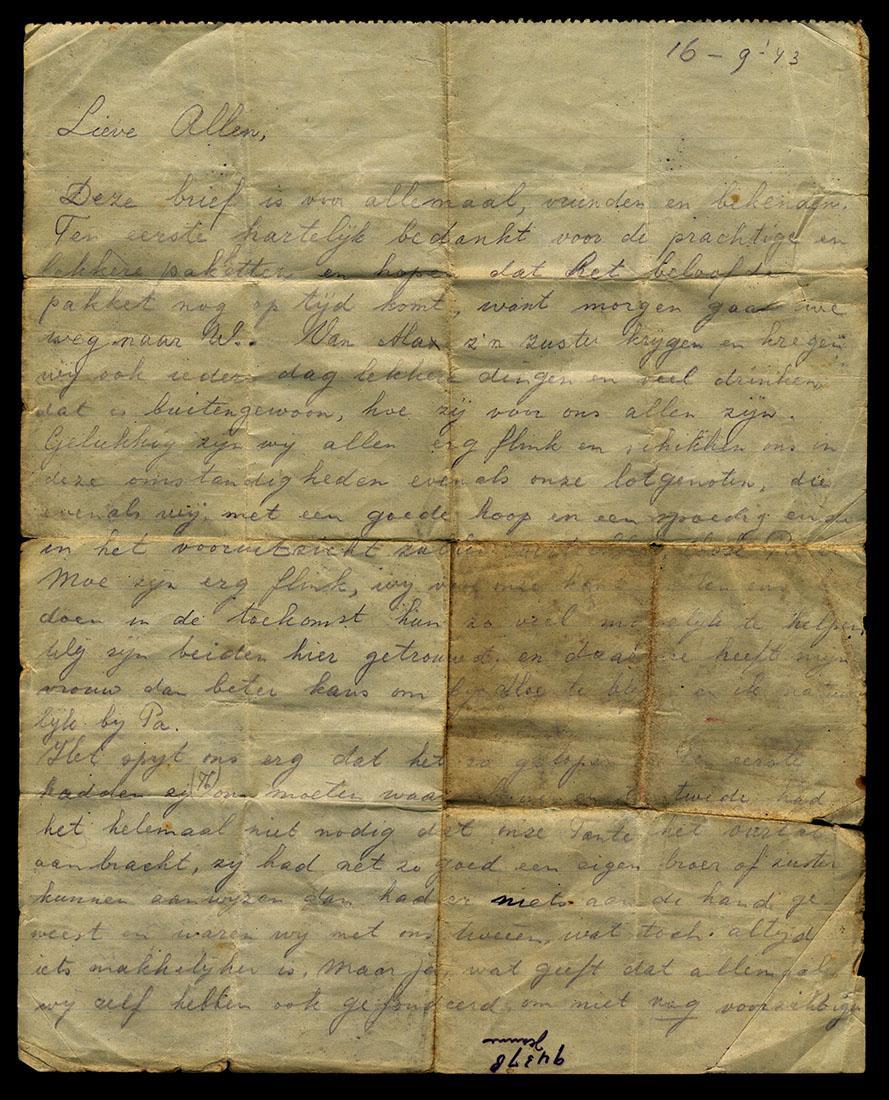 16 - 9 - '43
Lieve Allen,
Deze brief is voor allemaal, vrienden en bekenden.
Ten eerste hartelijk bedankt voor de prachtige en
lekkere paketten en hopen dat het beloofde
pakket nog op tijd komt, want morgen gaan we
weg naar W.. Van Max z'n zuster krijgen en kregen
wij ook ieder dag lekkere dingen en veel drinken
dat is buitengewoon, hoe zij voor ons allen zijn.
Gelukkig zijn wij allen erg flink en schikken ons in
deze omstandigheden evenals onze lotgenoten, die
evenals wij met een goede hoop en een spoedig einde
in het vooruitzicht
Moe zijn erg flink, wij
doen in de toekomst hun zo veel mogelijk te helpen.
Wij zijn beiden hier getrouwd, en daarmee heeft mijn
vrouw dan beter kans om bij Moe te blijven en ik natuur
lijk bij Pa.
Het spijt ons erg dat het zo gelopen eerste
hadden zij (76) ons moeten tweede had
het helemaal niet nodig dat onze Tante het overal
aanbracht, zij had net zo goed een eigen broer of zuster
kunnen aanwijzen dan had er niets aan de hand ge-
weest en waren wij met ons tweeen, wat toch altijd
iets makkelijker is. Maar ja, wat geeft dat allemaal
wij zelf hebben ook om niet nog voorzichtiger
94378